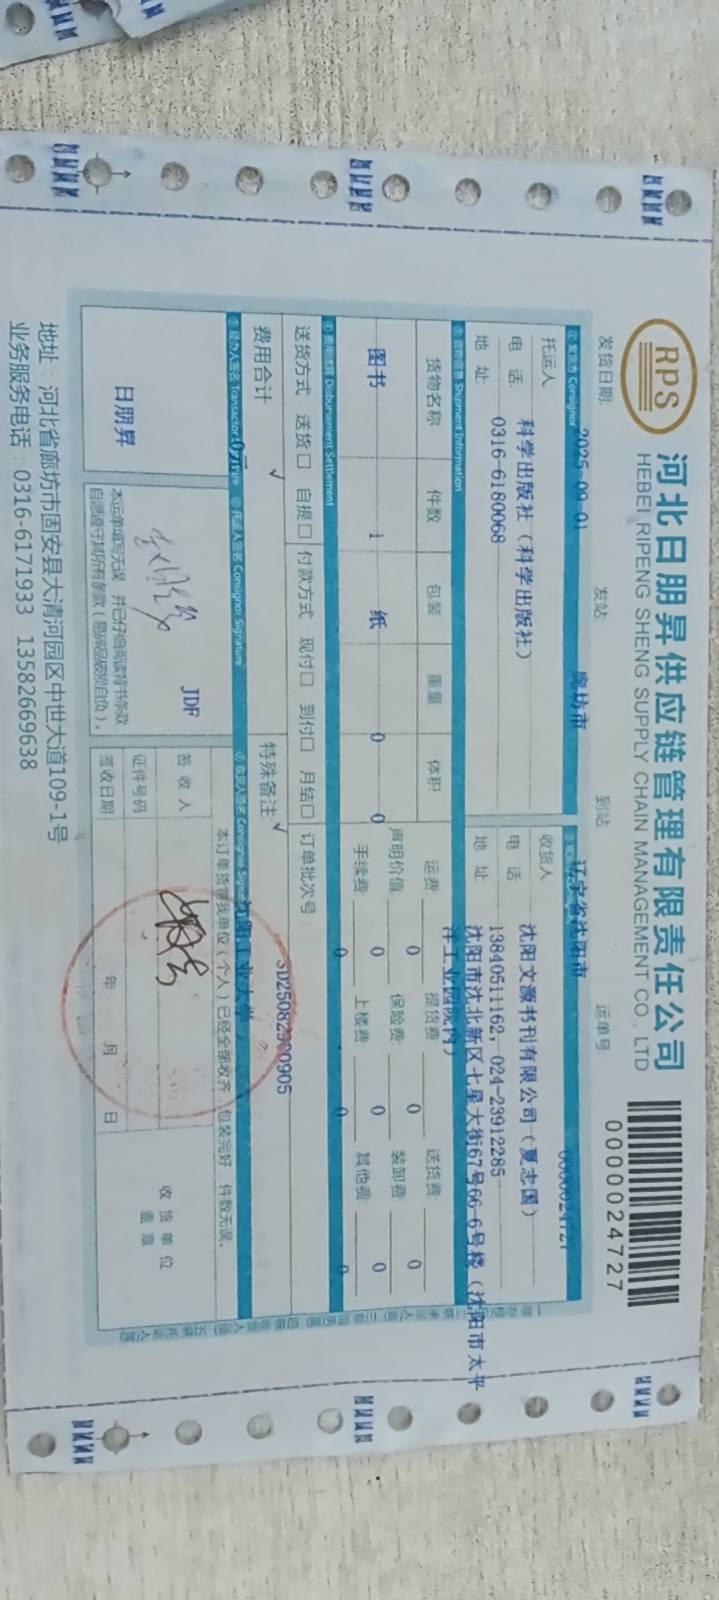 RPS
河北日朋昇供应链管理有限责任公司
HEBEI RIPENG SHENG SUPPLY CHAIN MANAGEMENT CO., LTD
0000024727
发货日期: 2025-09-01 发站 廊坊市 到站 辽宁省沈阳市 运单号 0000024727
① 发货方 Consignor
托运人 科学出版社（科学出版社）
电 话 0316-6180068
地 址
收货人 沈阳文源书刊有限公司（夏志国）
电 话 13840511162, 024-23912285
地 址 沈阳市沈北新区七星大街67号66-6号楼（沈阳市太平洋工业园院内）
Shipment Information
货物名称 件数 包装 重量 体积
图书 1 纸 0 0
运费: 0 提货费: 0 送货费: 0
声明价值: 0 保险费: 0 装卸费: 0
手续费: 0 上楼费: 0 其他费: 0
Disbursement Settlement
送货方式 送货□ 自提□ 付款方式 现付□ 到付□ 月结□ 订单批次号: SD25082900905
费用合计 √ 特殊备注: √ 沈阳工业大学
⑤ 经办人签名 Transactor Signature ⑥ 托运人签名 Consignor Signature ⑦ 收货人签名 Consignee Signature
日朋昇
JDF
本运单填写无误，并已仔细阅读背书条款
自愿遵守其所有条款（易碎品破损自负）。
本订单货物我单位（个人）已经全部收齐，包装完好，件数无误。
签 收 人
证件号码
签收日期 年 月 日
收 货 单 位
盖 章
地址：河北省廊坊市固安县大清河园区中世大道109-1号
业务服务电话：0316-6171933 13582669638